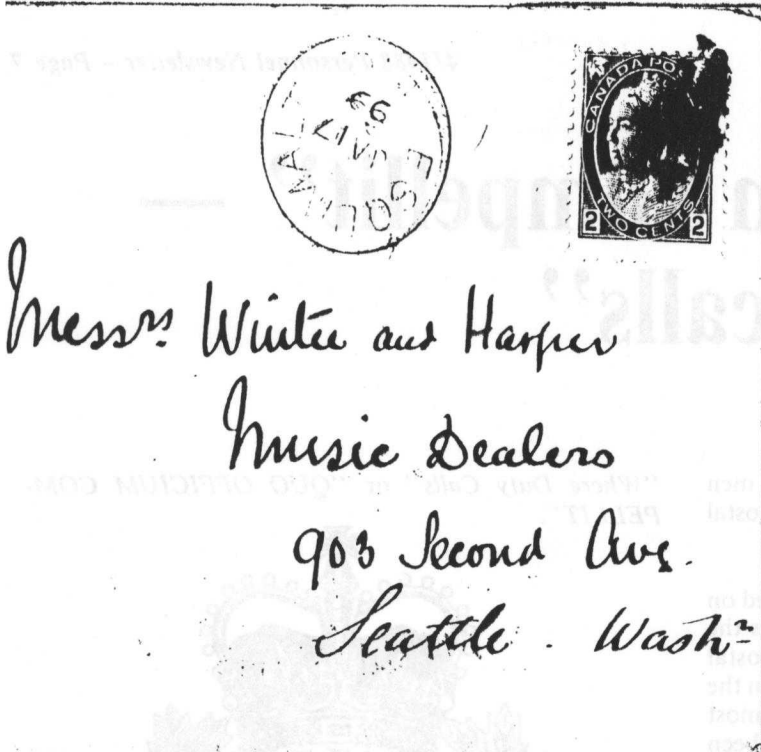 ESQUIMALT
99
CANADA POS
2 TWO CENTS 2
Messrs. Winter and Harper
Music Dealers
903 Second Ave.
Seattle. Washn